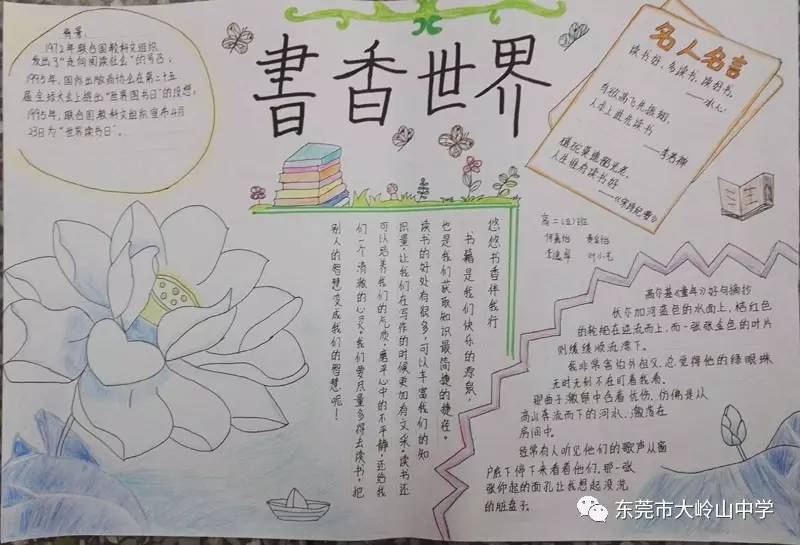 背景：
1972年联合国教科文组织
发出了“走向阅读社会”的号召；
1995年，国际出版商协会在第二十五
届全球大会上提出“世界图书日”的设想；
1995年，联合国教科文组织宣布4月
23日为“世界读书日”。
書香世界
名人名言
读书好，多读书，读好书。
——冰心
鸟欲高飞先振翅，
人求上进先读书
——李苦禅
人生唯有读书好
高二（5）班
悠悠书香伴我行
书籍是我们快乐的源泉，
也是我们获取知识最简捷的捷径。
读书的好处有很多，可以丰富我们的知
识量，让我们在写作的时候更加有文采。读书还
可以培养我们的气质，磨平心中的不平静，还给我
们一个清澈的心灵。我们要尽量多得去读书，把
别人的智慧变成我们的智慧呢！
高尔基《童年》好句摘抄
伏尔加河蓝色的水面上，橘红色
的轮船在逆流而上，而一张张金色的叶片
则缓缓顺流漂下。
我非常害怕外祖父，总觉得他的绿眼珠
无时无刻不在盯着我看。
那曲子激昂中含着忧伤，仿佛是从
高山奔流而下的河水，激荡在
房间中。
经常有人听见他们的歌声从窗
户底下停下来看着他们，那一张
张仰起的面孔让我想起没洗
的脏盘子。
东莞市大岭山中学